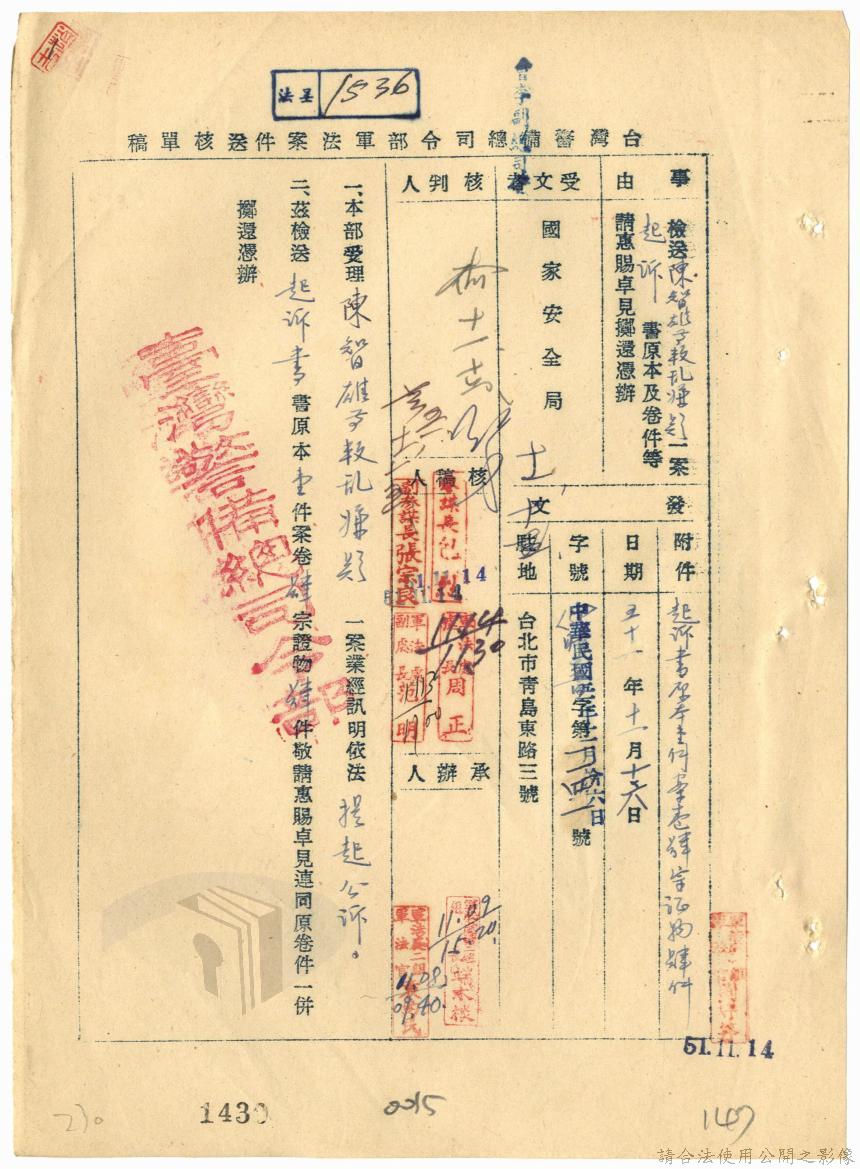 法呈 1536
台灣警備總司令部軍法案件送核單稿
事由
檢送陳智雄等叛乱嫌疑一案
起訴書原本及卷件等
請惠賜卓見擲還憑辦
受文者
國家安全局
發文
附件
起訴書原本壹件案卷肆宗証物肆件
日期
五十一年十一月十六日
字號
字第 號
中華民國 年十一月 六日
駐地
台北市青島東路三號
核判人
核稿人
副參謀長張
51.11.14
51.11.14
軍法處處長周正
1114
1130
軍法處副處長范明
承辦人
11.09
15.20
11.08
09.40
一、本部受理陳智雄等叛乱嫌疑一案業經訊明依法提起公訴。
二、茲檢送起訴書書原本壹件案卷肆宗證物肆件敬請惠賜卓見連同原卷件一併
擲還憑辦
臺灣警備總司令部
51.11.14
230
1430
0015
147
請合法使用公開之影像